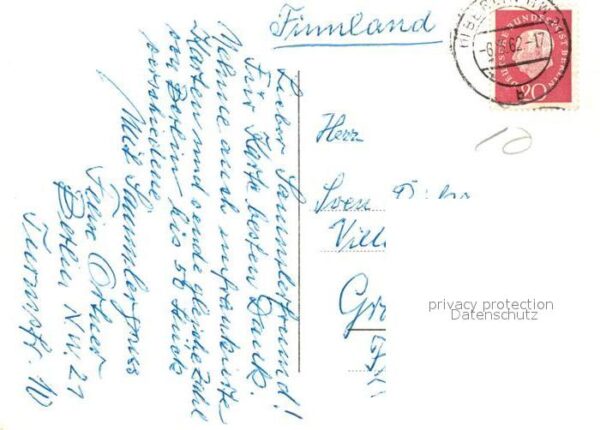 Finnland
(1) BERLIN NW
-6.6.62-17
b
DEUTSCHE BUNDESPOST BERLIN
20
10
Herr
Sven
Vill
Gr
F
privacy protection
Datenschutz
Lieber Sammlerfreund!
Für Karte besten Dank.
Nehme auch unfrankierte
Karten, und sende gleiche Zahl
von Berlin bis 50 Stück
verschiedene.
Mit Sammlergruss
Felix
Berlin N.W. 21
Turmstr. 10